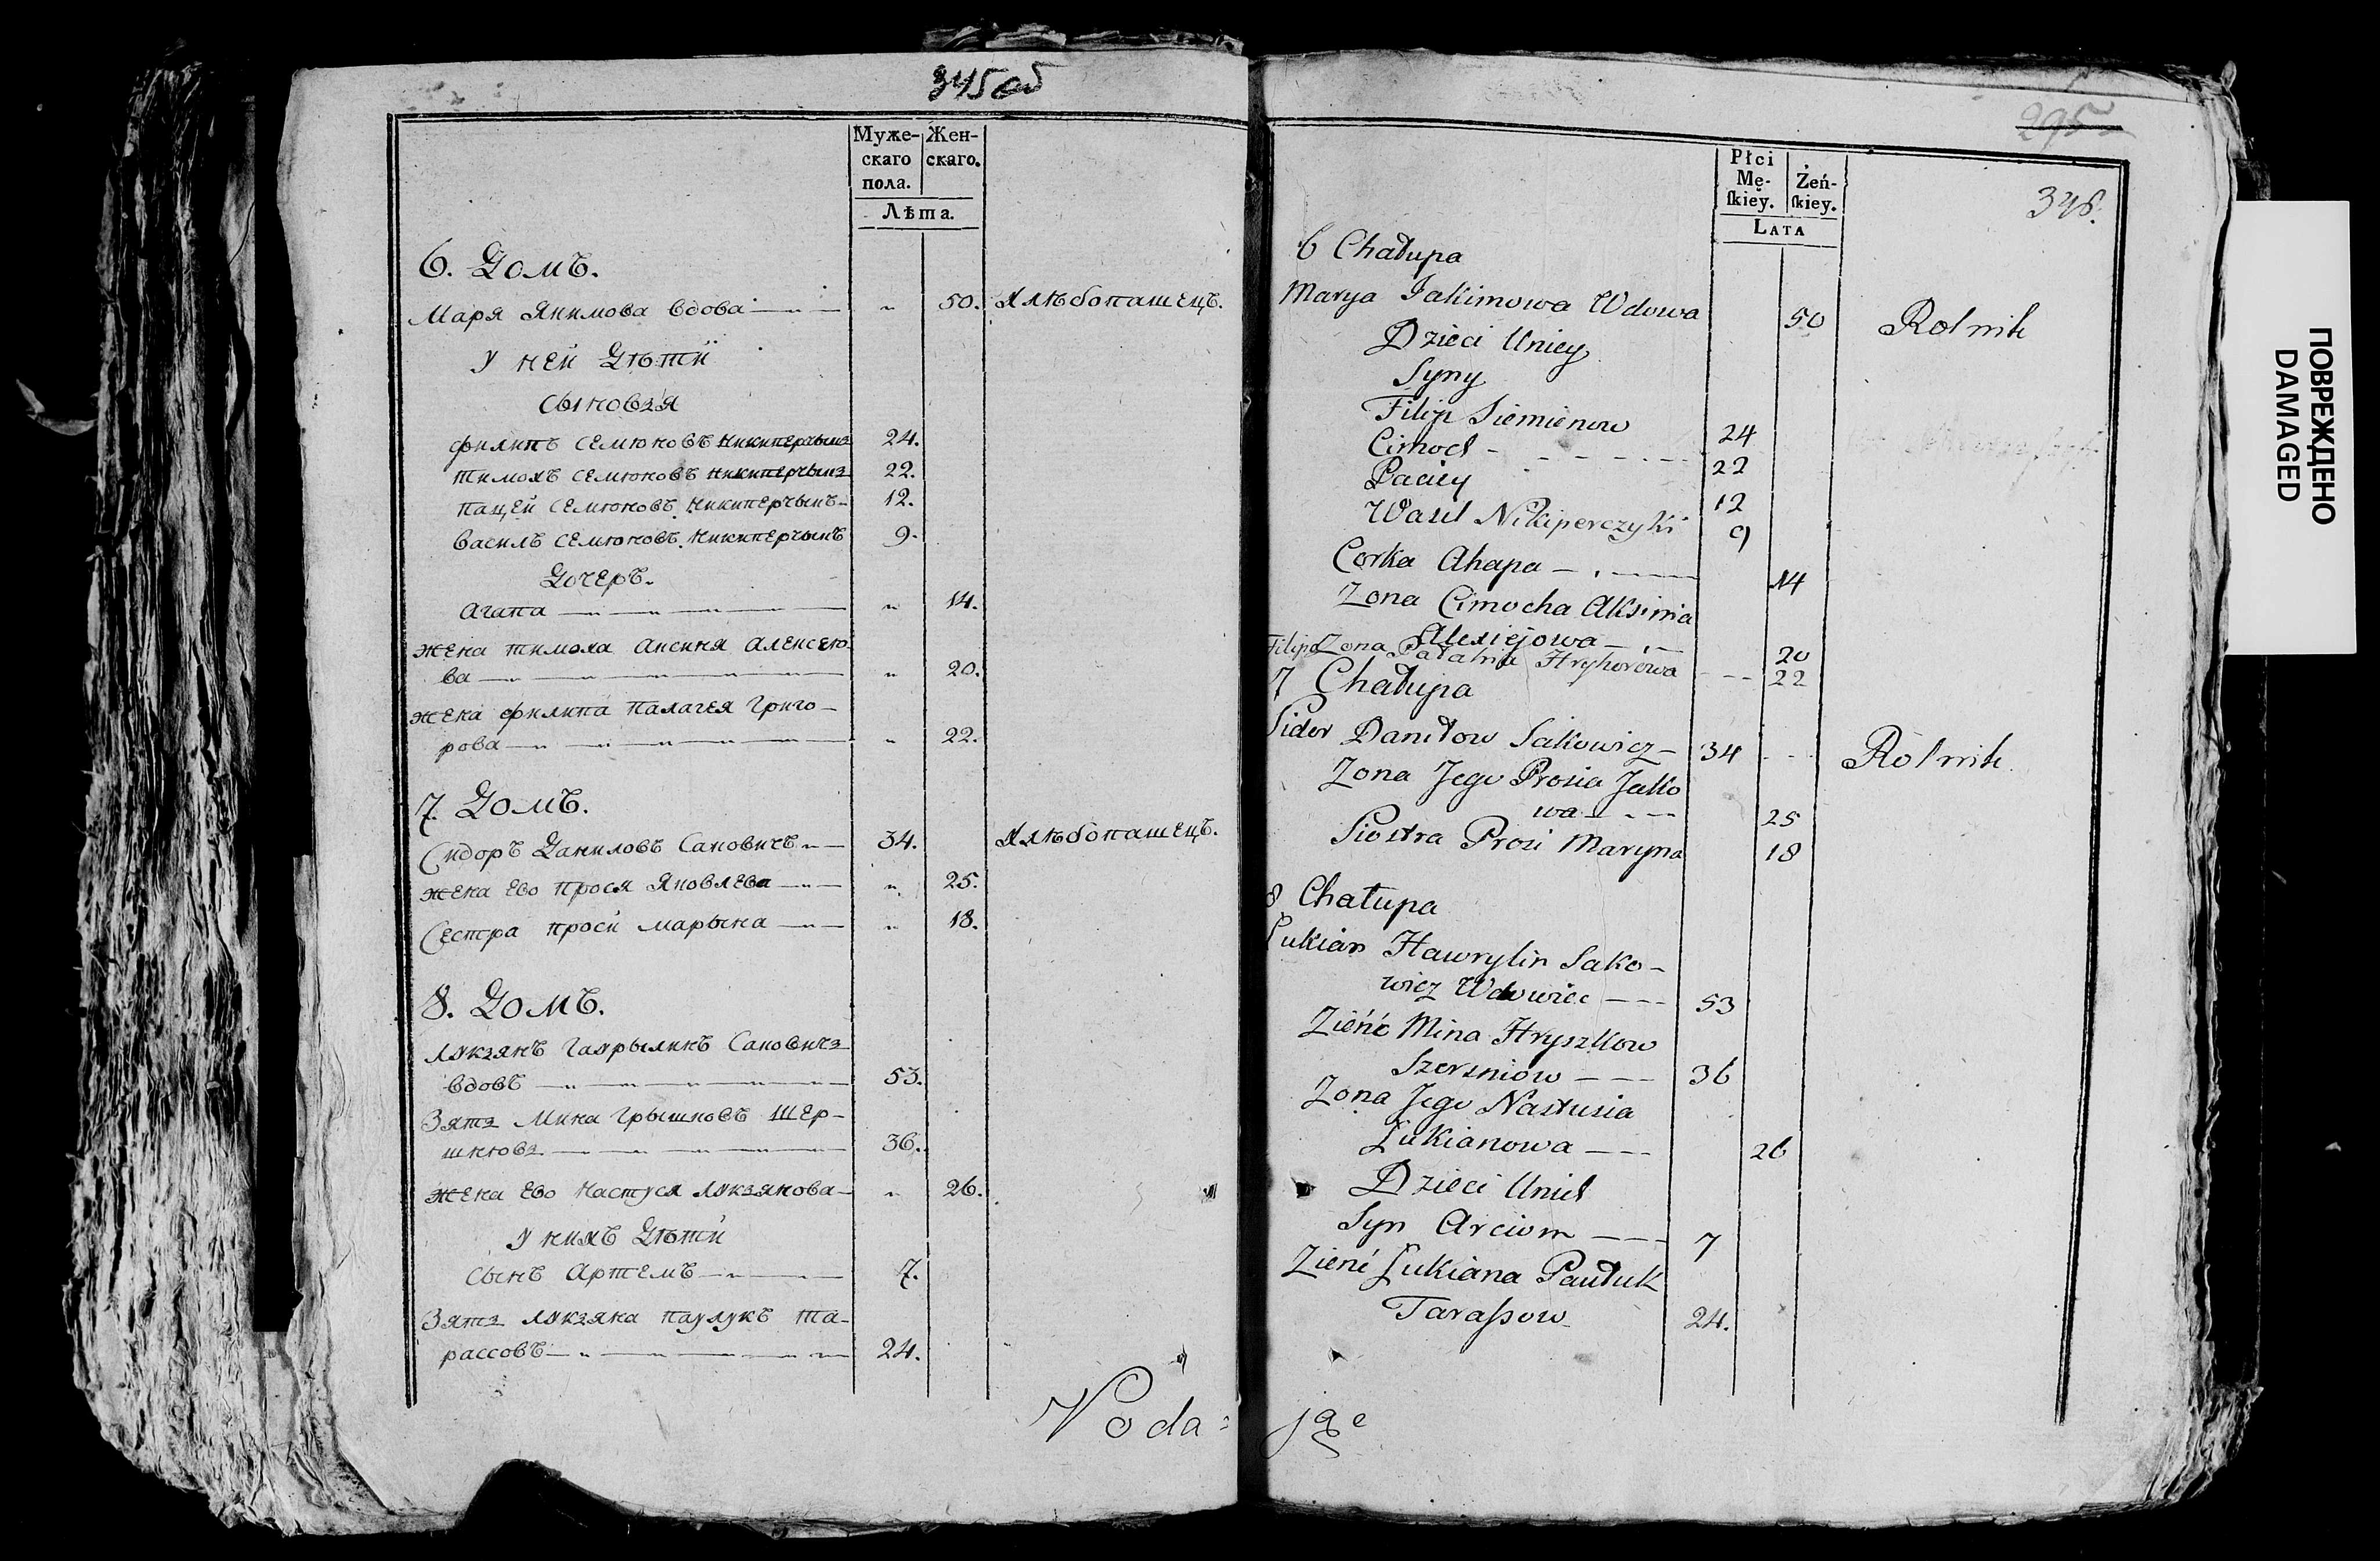 345 об
Муже-
скаго
пола.
Жен-
скаго.
Лѣта.
6. Домъ.
Маря Якимова вдова — " 50. Хлѣбопашецъ.
У ней Дѣти
Сыновзя
Филипъ Семюновъ Никиперчыкъ 24.
Тимохъ Семюновъ Никиперчыкъ 22.
Пацей Семюновъ Никиперчыкъ 12.
Василь Семюновъ Никиперчыкъ 9.
Дочеръ.
Агапа — " 14.
Жена Тимоха Аксиня Алексею-
ва — " 20.
Жена Филипа Палагея Григо-
рова — " 22.
7. Домъ.
Сидоръ Даниловъ Саковичъ — 34. Хлѣбопашецъ.
Жена Ево Прося Яковлева — " 25.
Сестра Проси Марына — " 18.
8. Домъ.
Лукзянъ Гаурылинъ Саковичз
вдовъ — 53.
Зятз Мина Грышковъ Шер-
шнювз — 36.
Жена Ево Настуся Лукзянова — " 26.
У нихъ Дѣти
Сынъ Артемъ — 7.
Зятз Лукзяна Паулукъ Та-
рассовъ — 24.
Poda=
295
346.
Płci
Mę-
ſkiey.
Żeń-
ſkiey.
LATA
6 Chałupa
Marya Jakimowa Wdowa 50 Rolnik
Dzieci Uniey
Syny
Filip Siemienow 24
Cimoch - - - - 22
Paciey 12
Wasil Nikiperczyki 9
Corka Ahapa — 14
Zona Cimocha Aksinia
Alexiejowa — 20
Filipa Zona Pałahia Hryhorowa - - - 22
7 Chałupa
Sidor Daniłow Sakowicz — 34 - - - Rolnik
Zona Jego Prosia Jako
wa — 25
Siostra Prosi Maryna 18
8 Chałupa
Łukian Hawrylin Sako-
wicz Wdowiec — 53
Zieńć Mina Hryszkow
Szerszniow — 36
Zona Jego Nastusia
Łukianowa — 26
Dzieci Unich
Syn Arciom — 7
Zienć Łukiana Paułuk
Taraſsow 24.
jące
ПОВРЕЖДЕНО
DAMAGED